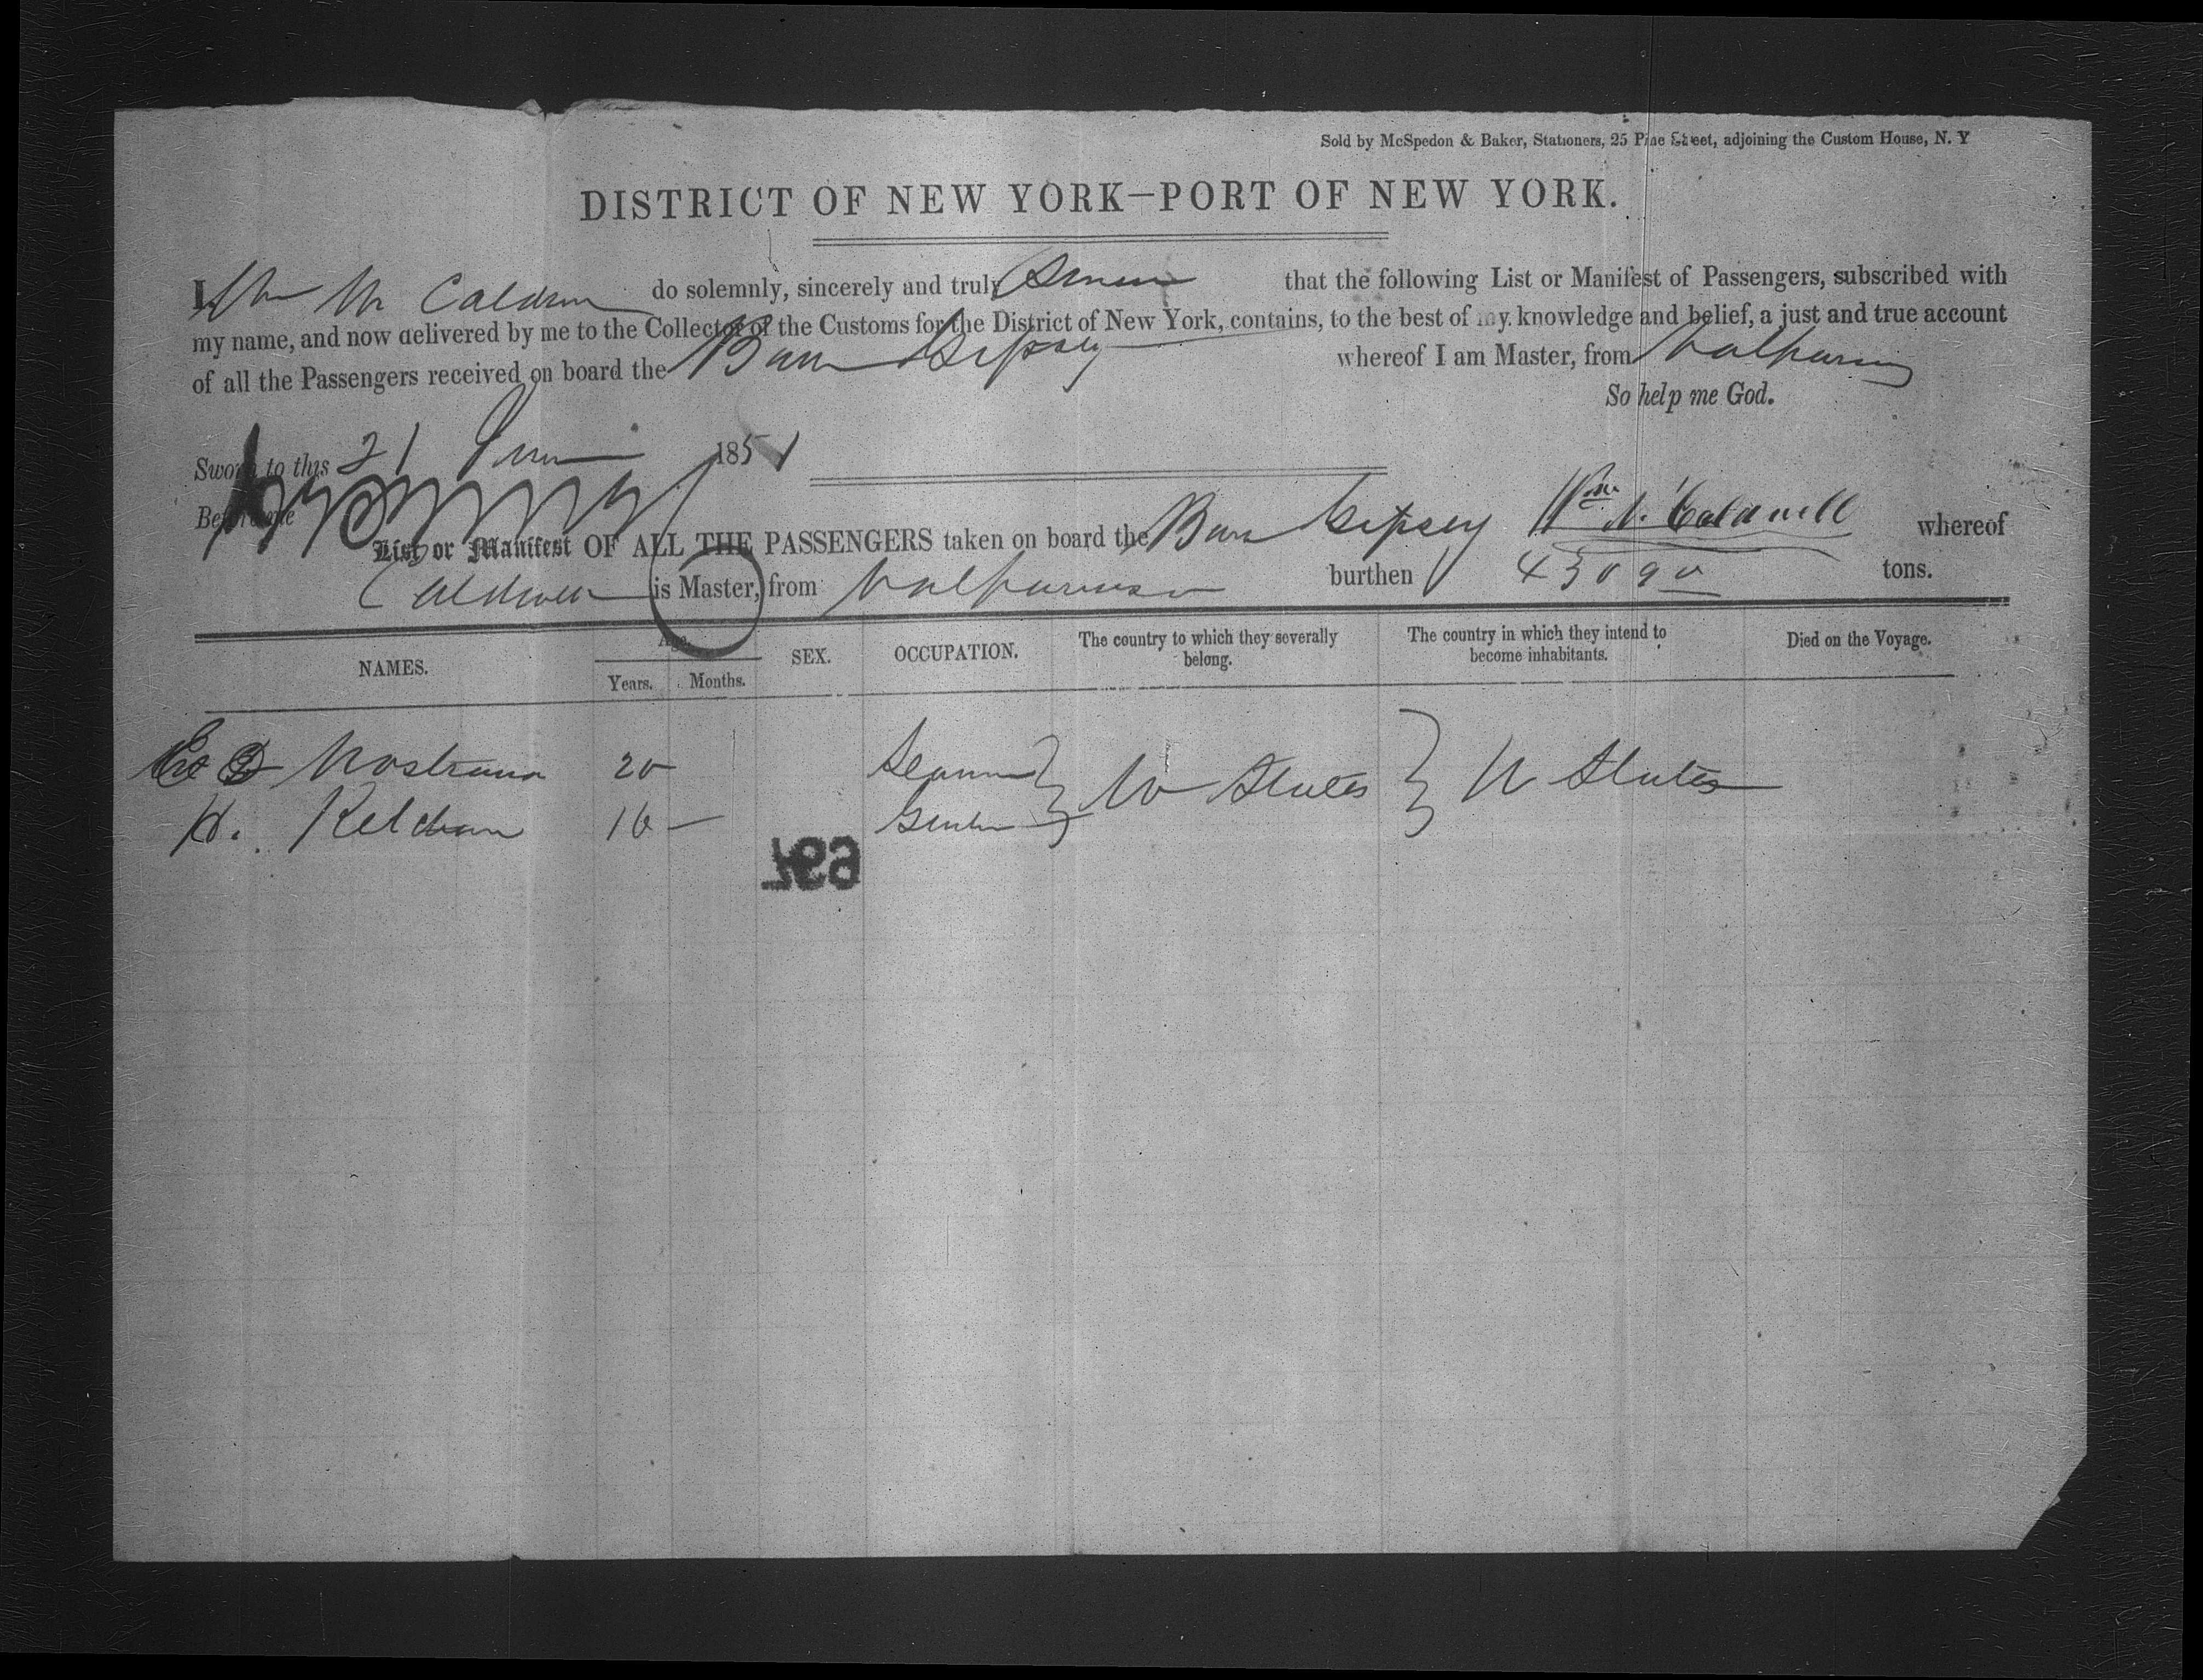 Sold by McSpedon & Baker, Stationers, 25 Pine Street, adjoining the Custom House, N. Y
DISTRICT OF NEW YORK—PORT OF NEW YORK.
I, Wm Caldwell do solemnly, sincerely and truly Swear that the following List or Manifest of Passengers, subscribed with
my name, and now delivered by me to the Collector of the Customs for the District of New York, contains, to the best of my knowledge and belief, a just and true account
of all the Passengers received on board the Bark Gipsey whereof I am Master, from Valparaiso
So help me God.
Sworn to this 21 June 1851
Before me
Wm N. Caldwell
List or Manifest OF ALL THE PASSENGERS taken on board the Bark Gipsey whereof
Caldwell is Master, from Valparaiso burthen 430 90 tons.
NAMES. Age. Years. Months. SEX. OCCUPATION. The country to which they severally belong. The country in which they intend to become inhabitants. Died on the Voyage.
Nostrand 20 Seaman U States U States
H. Ketcham 16
697